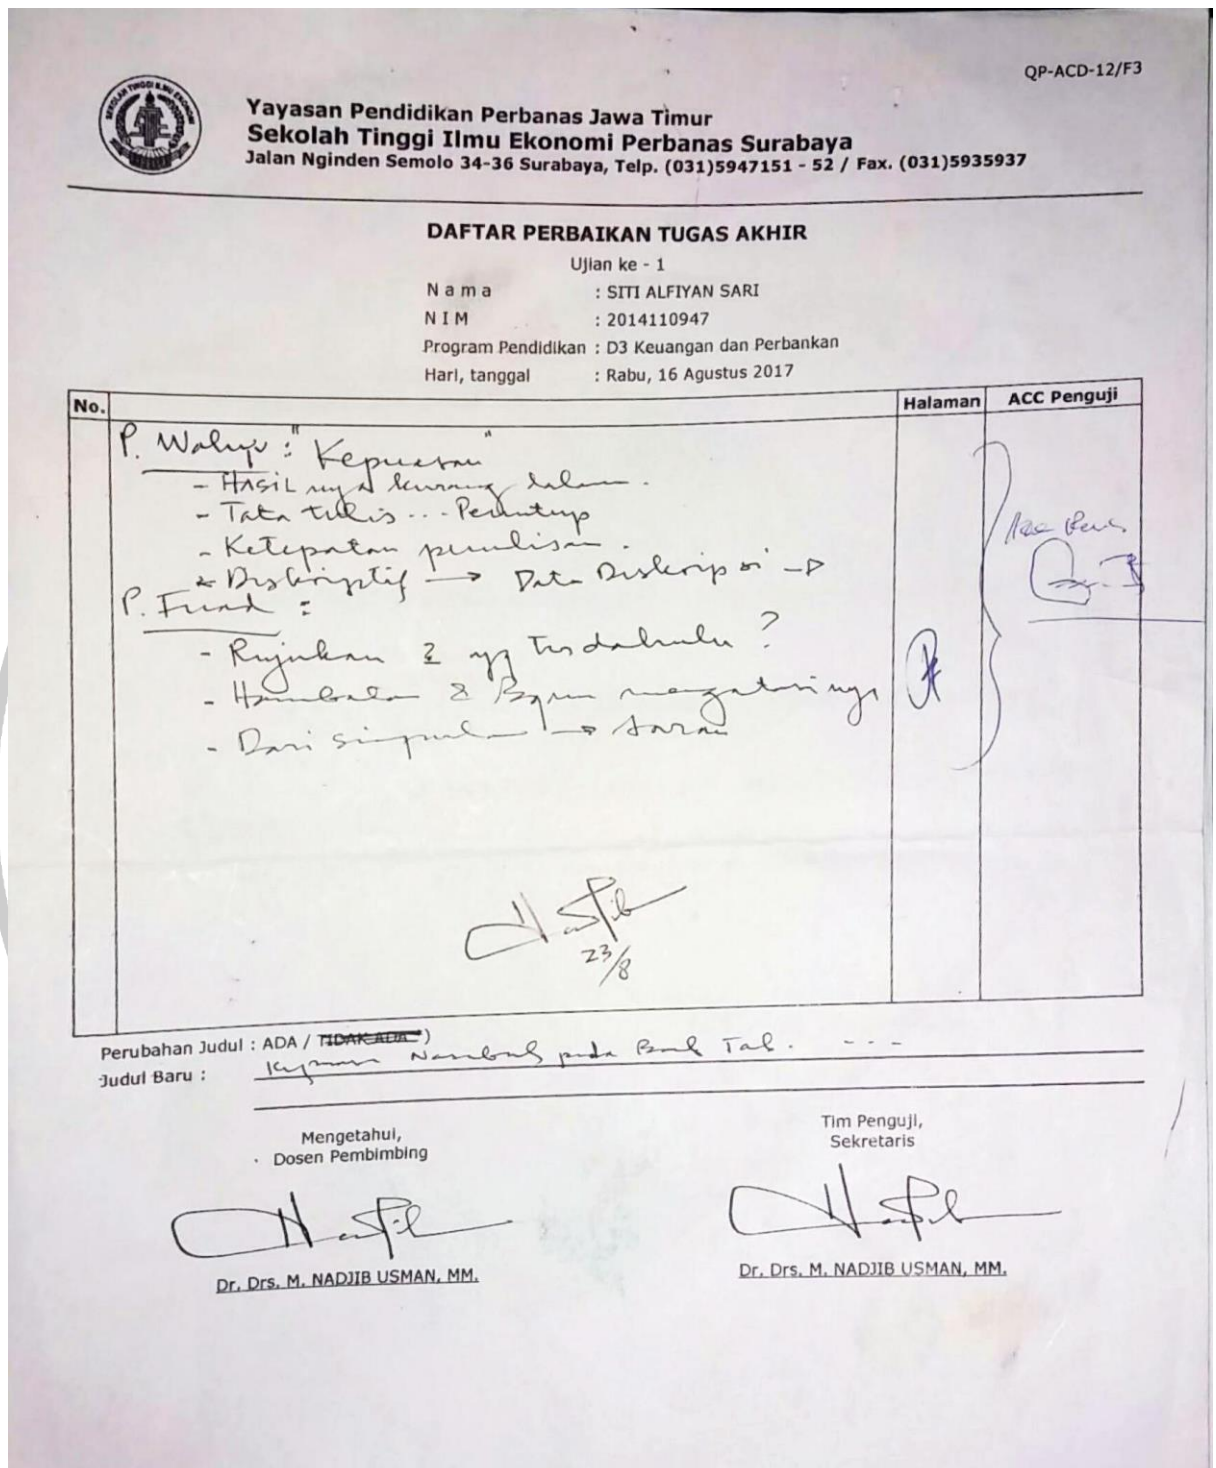 QP-ACD-12/F3
Yayasan Pendidikan Perbanas Jawa Timur
Sekolah Tinggi Ilmu Ekonomi Perbanas Surabaya
Jalan Nginden Semolo 34-36 Surabaya, Telp. (031)5947151 - 52 / Fax. (031)5935937
DAFTAR PERBAIKAN TUGAS AKHIR
Ujian ke - 1
N a m a : SITI ALFIYAN SARI
N I M : 2014110947
Program Pendidikan : D3 Keuangan dan Perbankan
Hari, tanggal : Rabu, 16 Agustus 2017
No. Halaman ACC Penguji
P. : "Kepuasan"
- HASIL nya kurang dalam.
- Tata tulis ... Penutup
- Ketepatan penulisan.
Diskriptif → Data Diskripsi →
P. Fuad :
- Rujukan 2 yg terdahulu ?
- Hambatan 2 mengatasinya
- Dari simpulan → saran
23/8
Perubahan Judul : ADA / TIDAK ADA *)
Judul Baru : Nasabah pada Bank Tab. - - -
Mengetahui,
Dosen Pembimbing
Tim Penguji,
Sekretaris
Dr. Drs. M. NADJIB USMAN, MM.
Dr. Drs. M. NADJIB USMAN, MM.